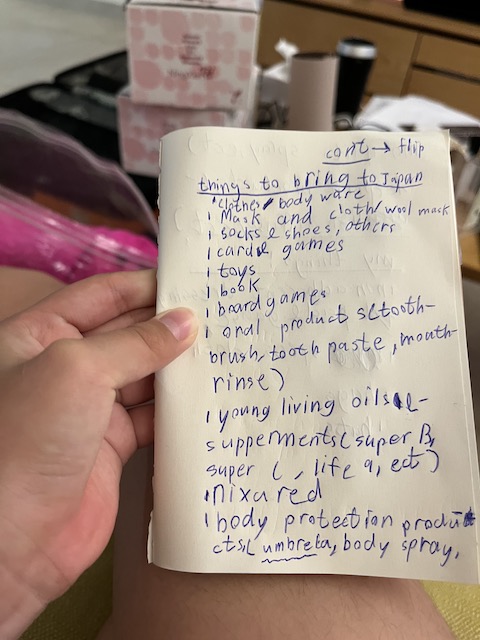 cont → flip
things to bring to Japan
clothes/body ware
Mask and cloth/wool mask
socks & shoes, others
card games
toys
book
board games
oral products(tooth-
brush, tooth paste, mouth-
rinse)
young living oils
supperments(super B,
super C, life 9, ect)
Nixared
body protection produ
cts(umbrela, body spray,